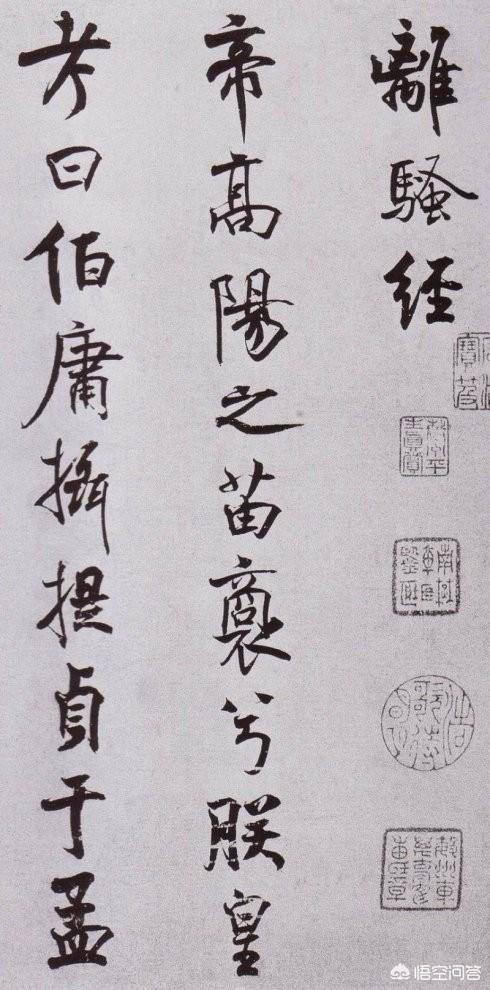 離騷經
帝高陽之苗裔兮朕皇
考曰伯庸攝提貞于孟
悟空问答